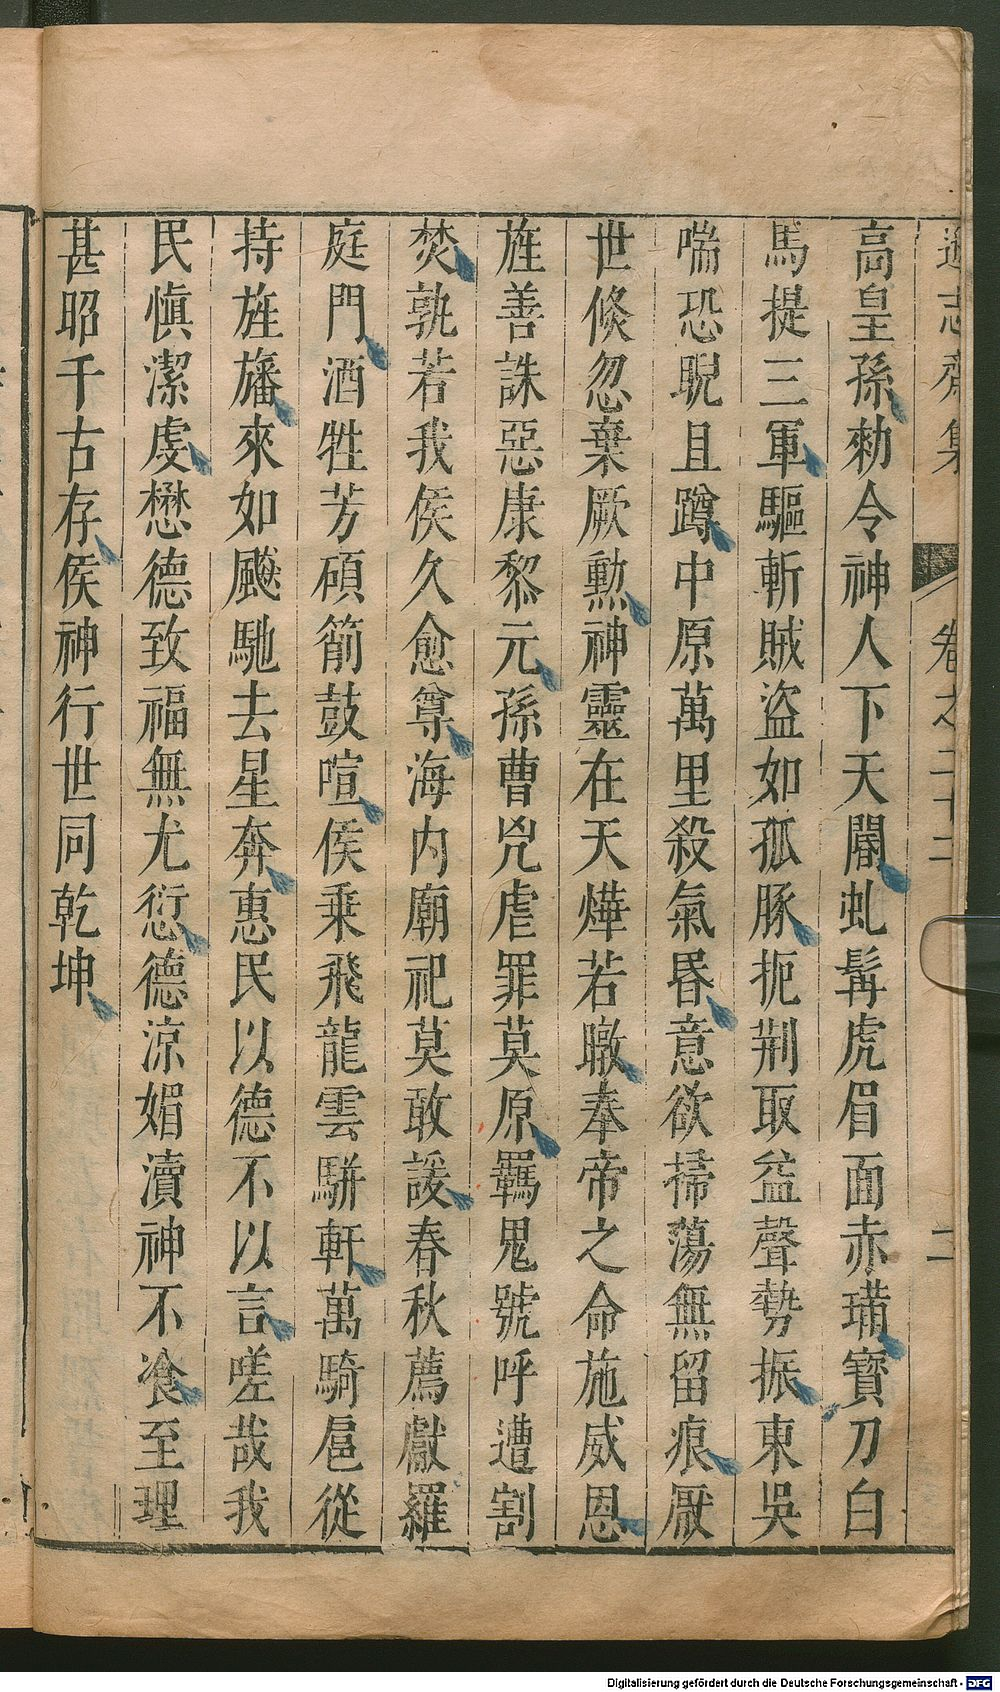 遜志齋集 卷之二十二 二
高皇孫勑令神人下天閽虬髯虎眉面赤璊寶刀白
馬提三軍驅斬賊盜如孤豚扼荆取益聲勢振東吳
喘恐睨且蹲中原萬里殺氣昬意欲掃蕩無留痕厭
世倏忽棄厥勳神靈在天燁若暾奉帝之命施威恩
旌善誅惡康黎元孫曹兇虐罪莫原羈鬼號呼遭割
焚孰若我侯久愈尊海内廟祀莫敢諼春秋薦獻羅
庭門酒牲芳碩簫鼓喧侯乘飛龍雲駢軒萬騎扈從
持旌旛來如飈馳去星奔惠民以德不以言嗟哉我
民慎潔虔懋德致福無尤愆德涼媚瀆神不飡至理
甚昭千古存侯神行世同乾坤
Digitalisierung gefördert durch die Deutsche Forschungsgemeinschaft - DFG